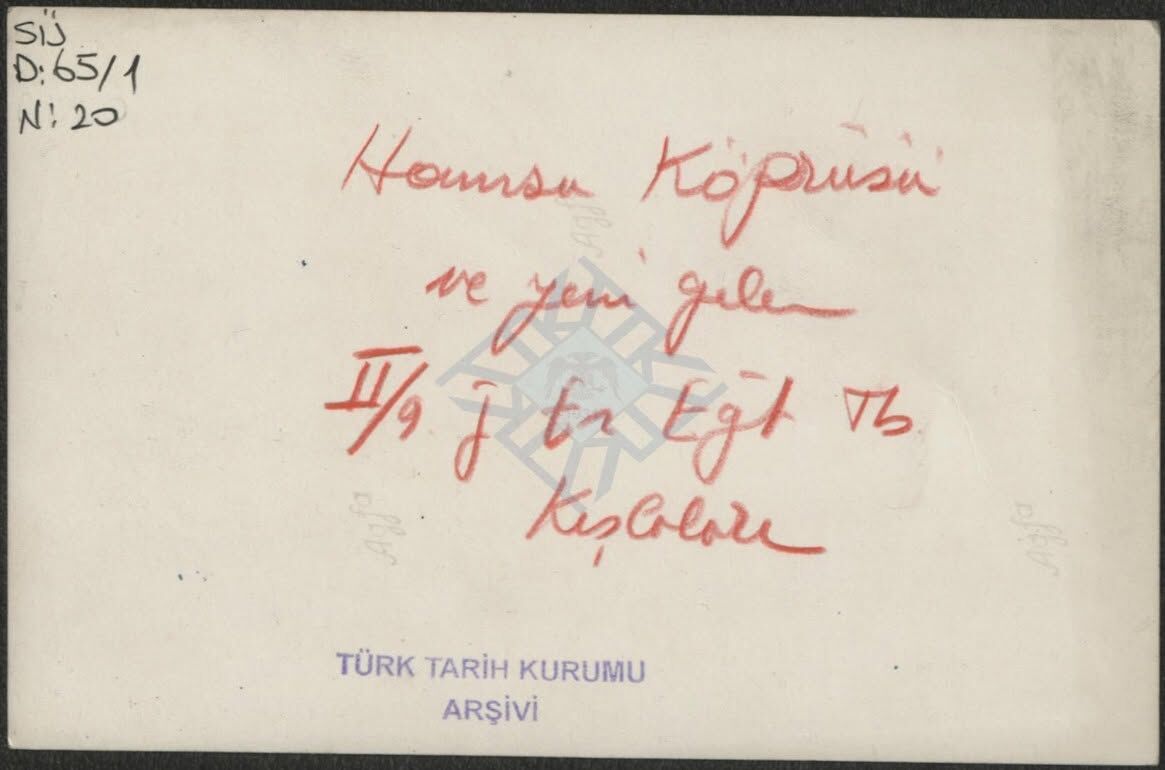 SİJ
D: 65/1
N: 20
Hamsu Köprüsü
ve yeni gelen
II/9 J Er Eğt Tb
Kışlaları
TÜRK TARİH KURUMU
ARŞİVİ
Agfa
Agfa
Agfa